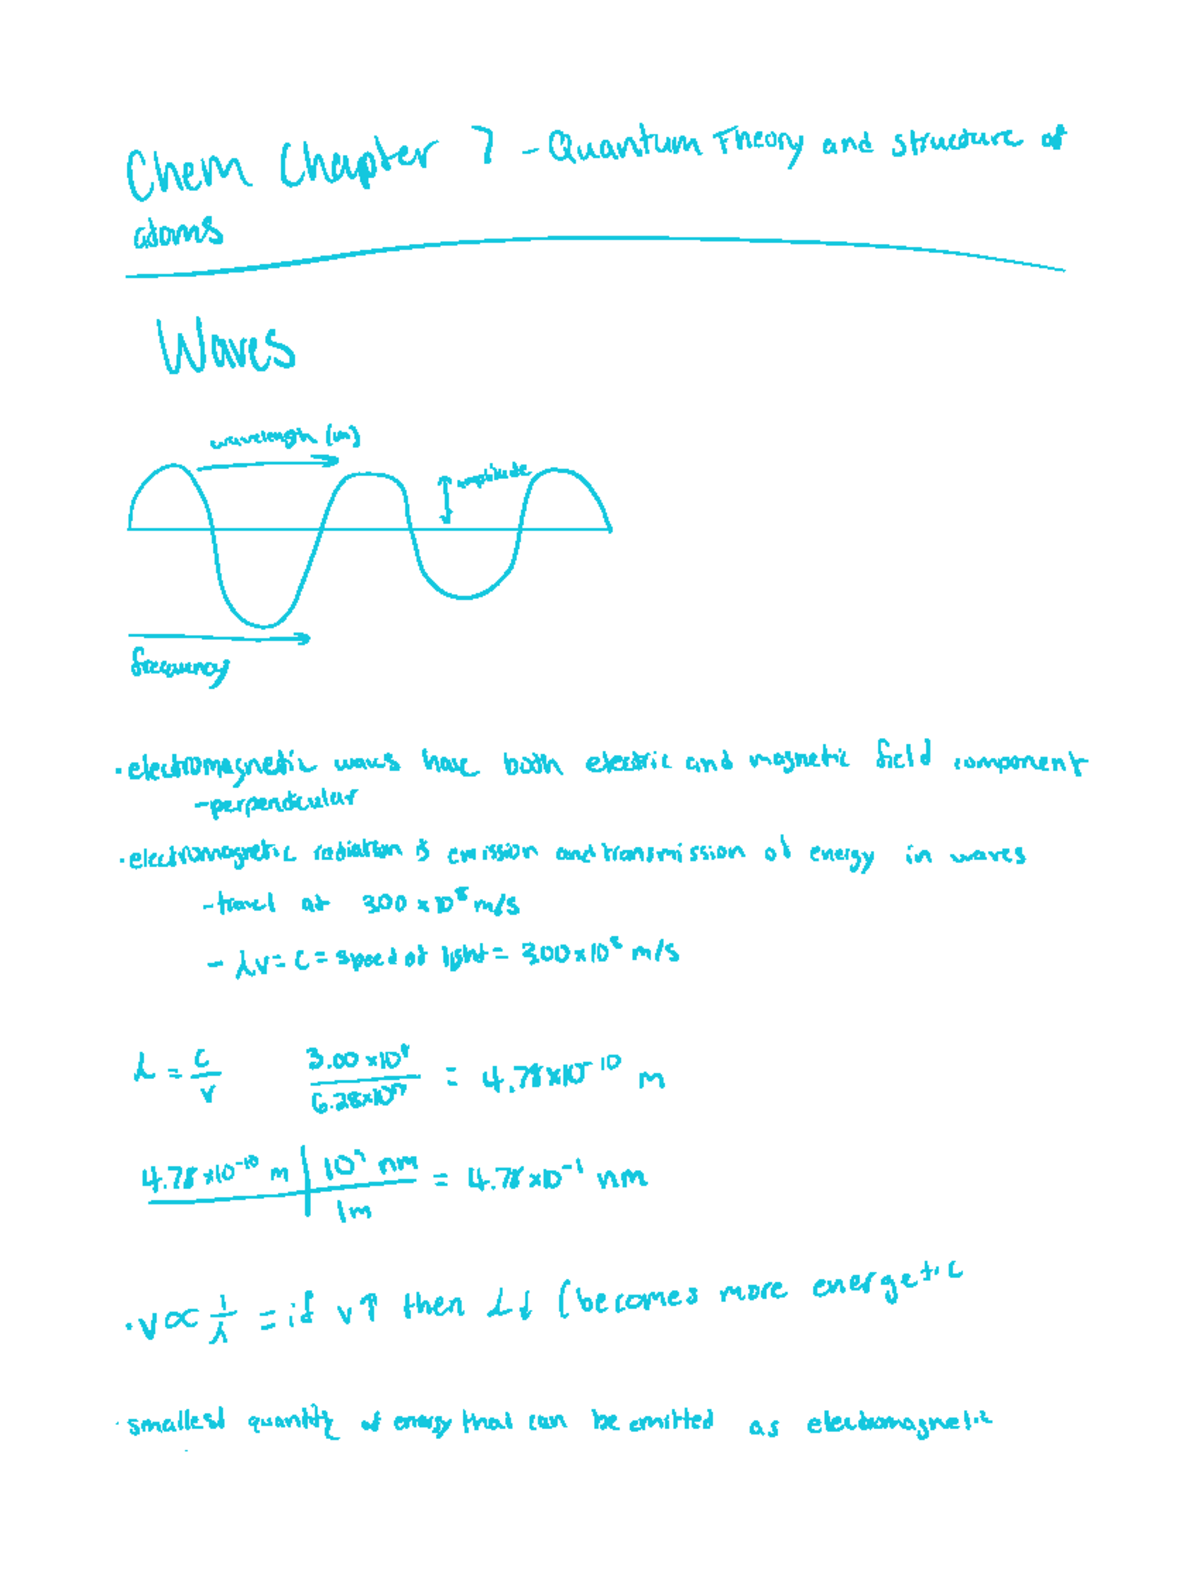 Chem Chapter 7 - Quantum Theory and structure of
atoms
Waves
wavelength (m)
amplitude
frequency
• electromagnetic waves have both electric and magnetic field component
- perpendicular
• electromagnetic radiation is emission and transmission of energy in waves
- travel at 3.00 x 10⁸ m/s
- λv = c = speed of light = 3.00 x 10⁸ m/s
λ = c/v 3.00 x 10⁸ / 6.28 x 10¹⁷ = 4.78 x 10⁻¹⁰ m
4.78 x 10⁻¹⁰ m | 10⁹ nm / 1m = 4.78 x 10⁻¹ nm
• v ∝ 1/λ = if v↑ then λ↓ (becomes more energetic
• smallest quantity of energy that can be emitted as electromagnetic